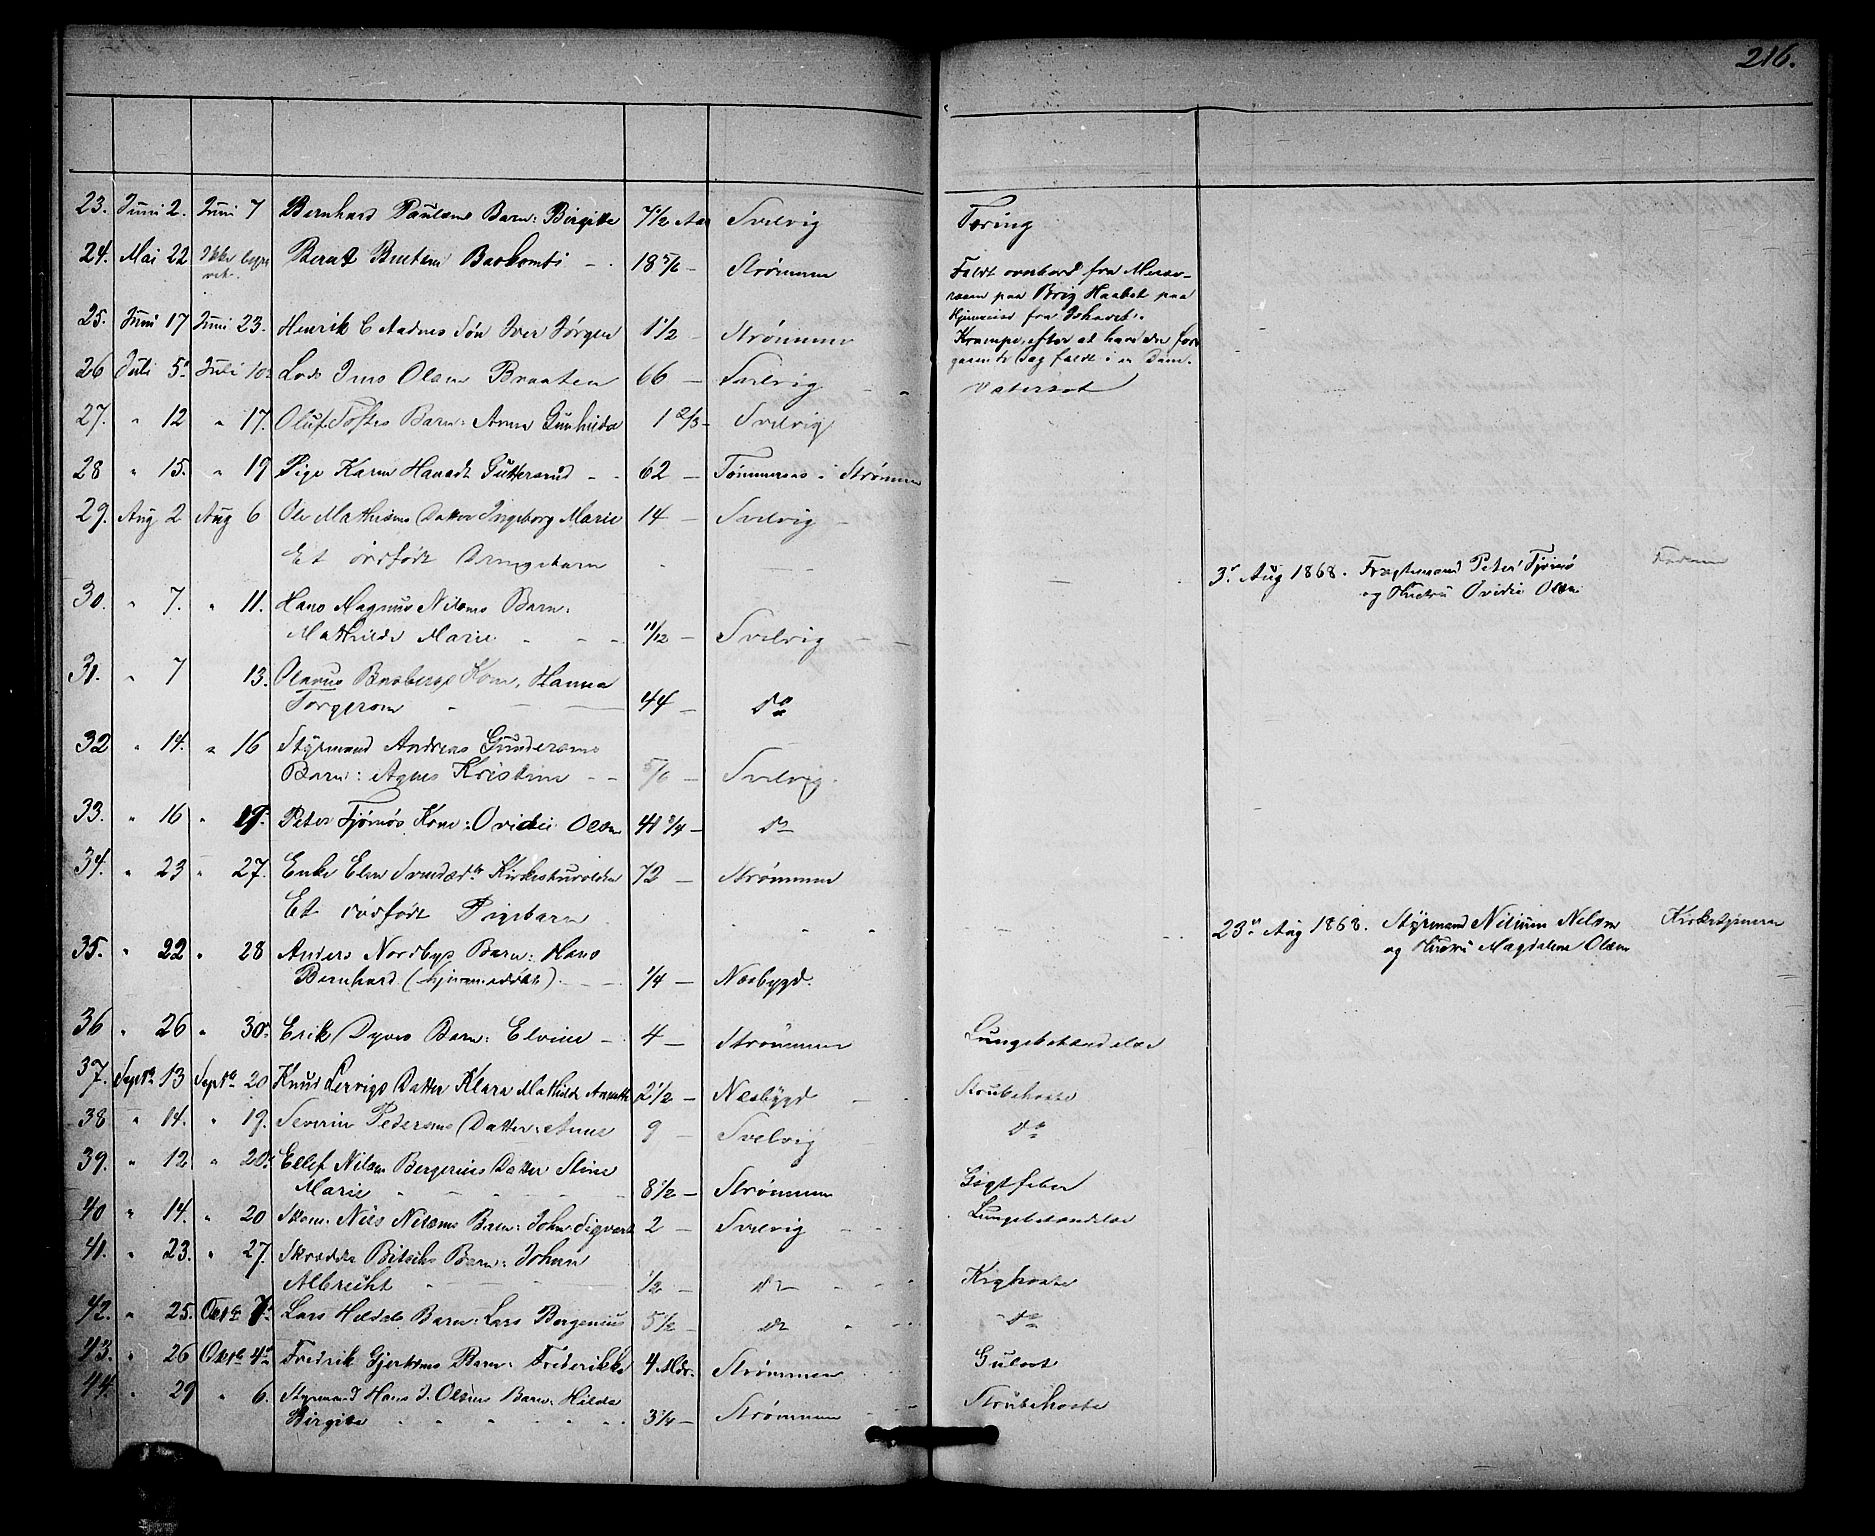 216.
23. Juni 2. Juni 7 Bernhard Paulsens Barn: Birgitte 7 1/2 Aar Svelvig Tæring
24. Mai 22 Ikke begra- Bernt - - 18 5/6 - Strømmen Faldt overbord fra
vet. paa Brig Haabet paa
Hjemreise fra Ishavet.
25. Juni 17 Juni 23. Henrik C Aadnes Søn Iver Jørgen 1 1/2 - Strømmen Krampe, efter at have den fore
gaaende Dag faldt i en Dam.
26 Juli 5. Juli 10. Lods Jens Olsen Braaten 66 - Svelvig Vatersot
27. " 12 " 17. Oluf Toftes Barn: Anna Gunhilda 1 2/3 - Svelvig
28 " 15. " 19 Pige Karen Hansdt Guttersrud - - 62 - Tømmeraas i Strømmen
29. Aug 2 Aug 6 Ole Mathisens Datter Ingeborg Marie 14 - Svelvig
Et dødfødt Drengebarn 3. Aug 1868. Fragtemand Peter Tjømø Faderen
og Hustru Ovidie Olsen
30. " 7. " 11. Hans Magnus Nilsens Barn:
Mathilde Marie 11/12 - Svelvig
31. " 7 13. Olavus Kone, Hanna
Torgersen 44 - Do
32 " 14. " 16 Styrmand Andreas Gundersens
Barn: Agnes Kristine - - 5/6 - Svelvig.
33. " 16 " 19. Peter Tjømøs Kone: Ovidie Olsen 41 3/4 - Do
34. " 23 " 27. Enke Elen Svendsdtr 72 - Strømmen
Et dødfødt Pigebarn 23. Aug 1868. Styrmand Nelsen Kirketjeneren
og Hustru Magdalene Olsen
35. " 22 " 28 Anders Nordbys Barn: Hans
Bernhard (hjemmedøbt) 1/4 - Nesbygd.
36 " 26 " 30. Erik Dyves Barn: Elvine - 4 - Strømmen Lungebetændelse
37. Septbr 13 Septbr 20 Knud Lervigs Datter Klara Mathilde Annette 2 1/2 - Nesbygd Strubehoste
38 " 14. " 19. Severin Pedersens Datter: Anne 9 - Svelvig Do
39. " 12 " 20. Ellef Nilsen Bergeries Datter Stine
Marie 8 1/2 - Strømmen Gigtfeber
40 " 14. " 20 Skom: Nils Nilsens Barn: John Sigvart 2 - Svelvig Lungebetændelse
41. " 23. " 27. Skrædder Barn: Johan
Albrecht 1/2 - Do Kighoste
42. " 25. Octbr 1. Lars Barn: Lars Bergenius 5 1/2 - Do Do
43. " 26 Octbr 4. Fredrik Gjertsens Barn: Frederikke 4 Mdr. Strømmen Gulsot
44. " 29 " 6. Styrmand Hans J. Olsens Barn: Hilda
Birgitte 3 1/4 - Strømmen Strubehoste